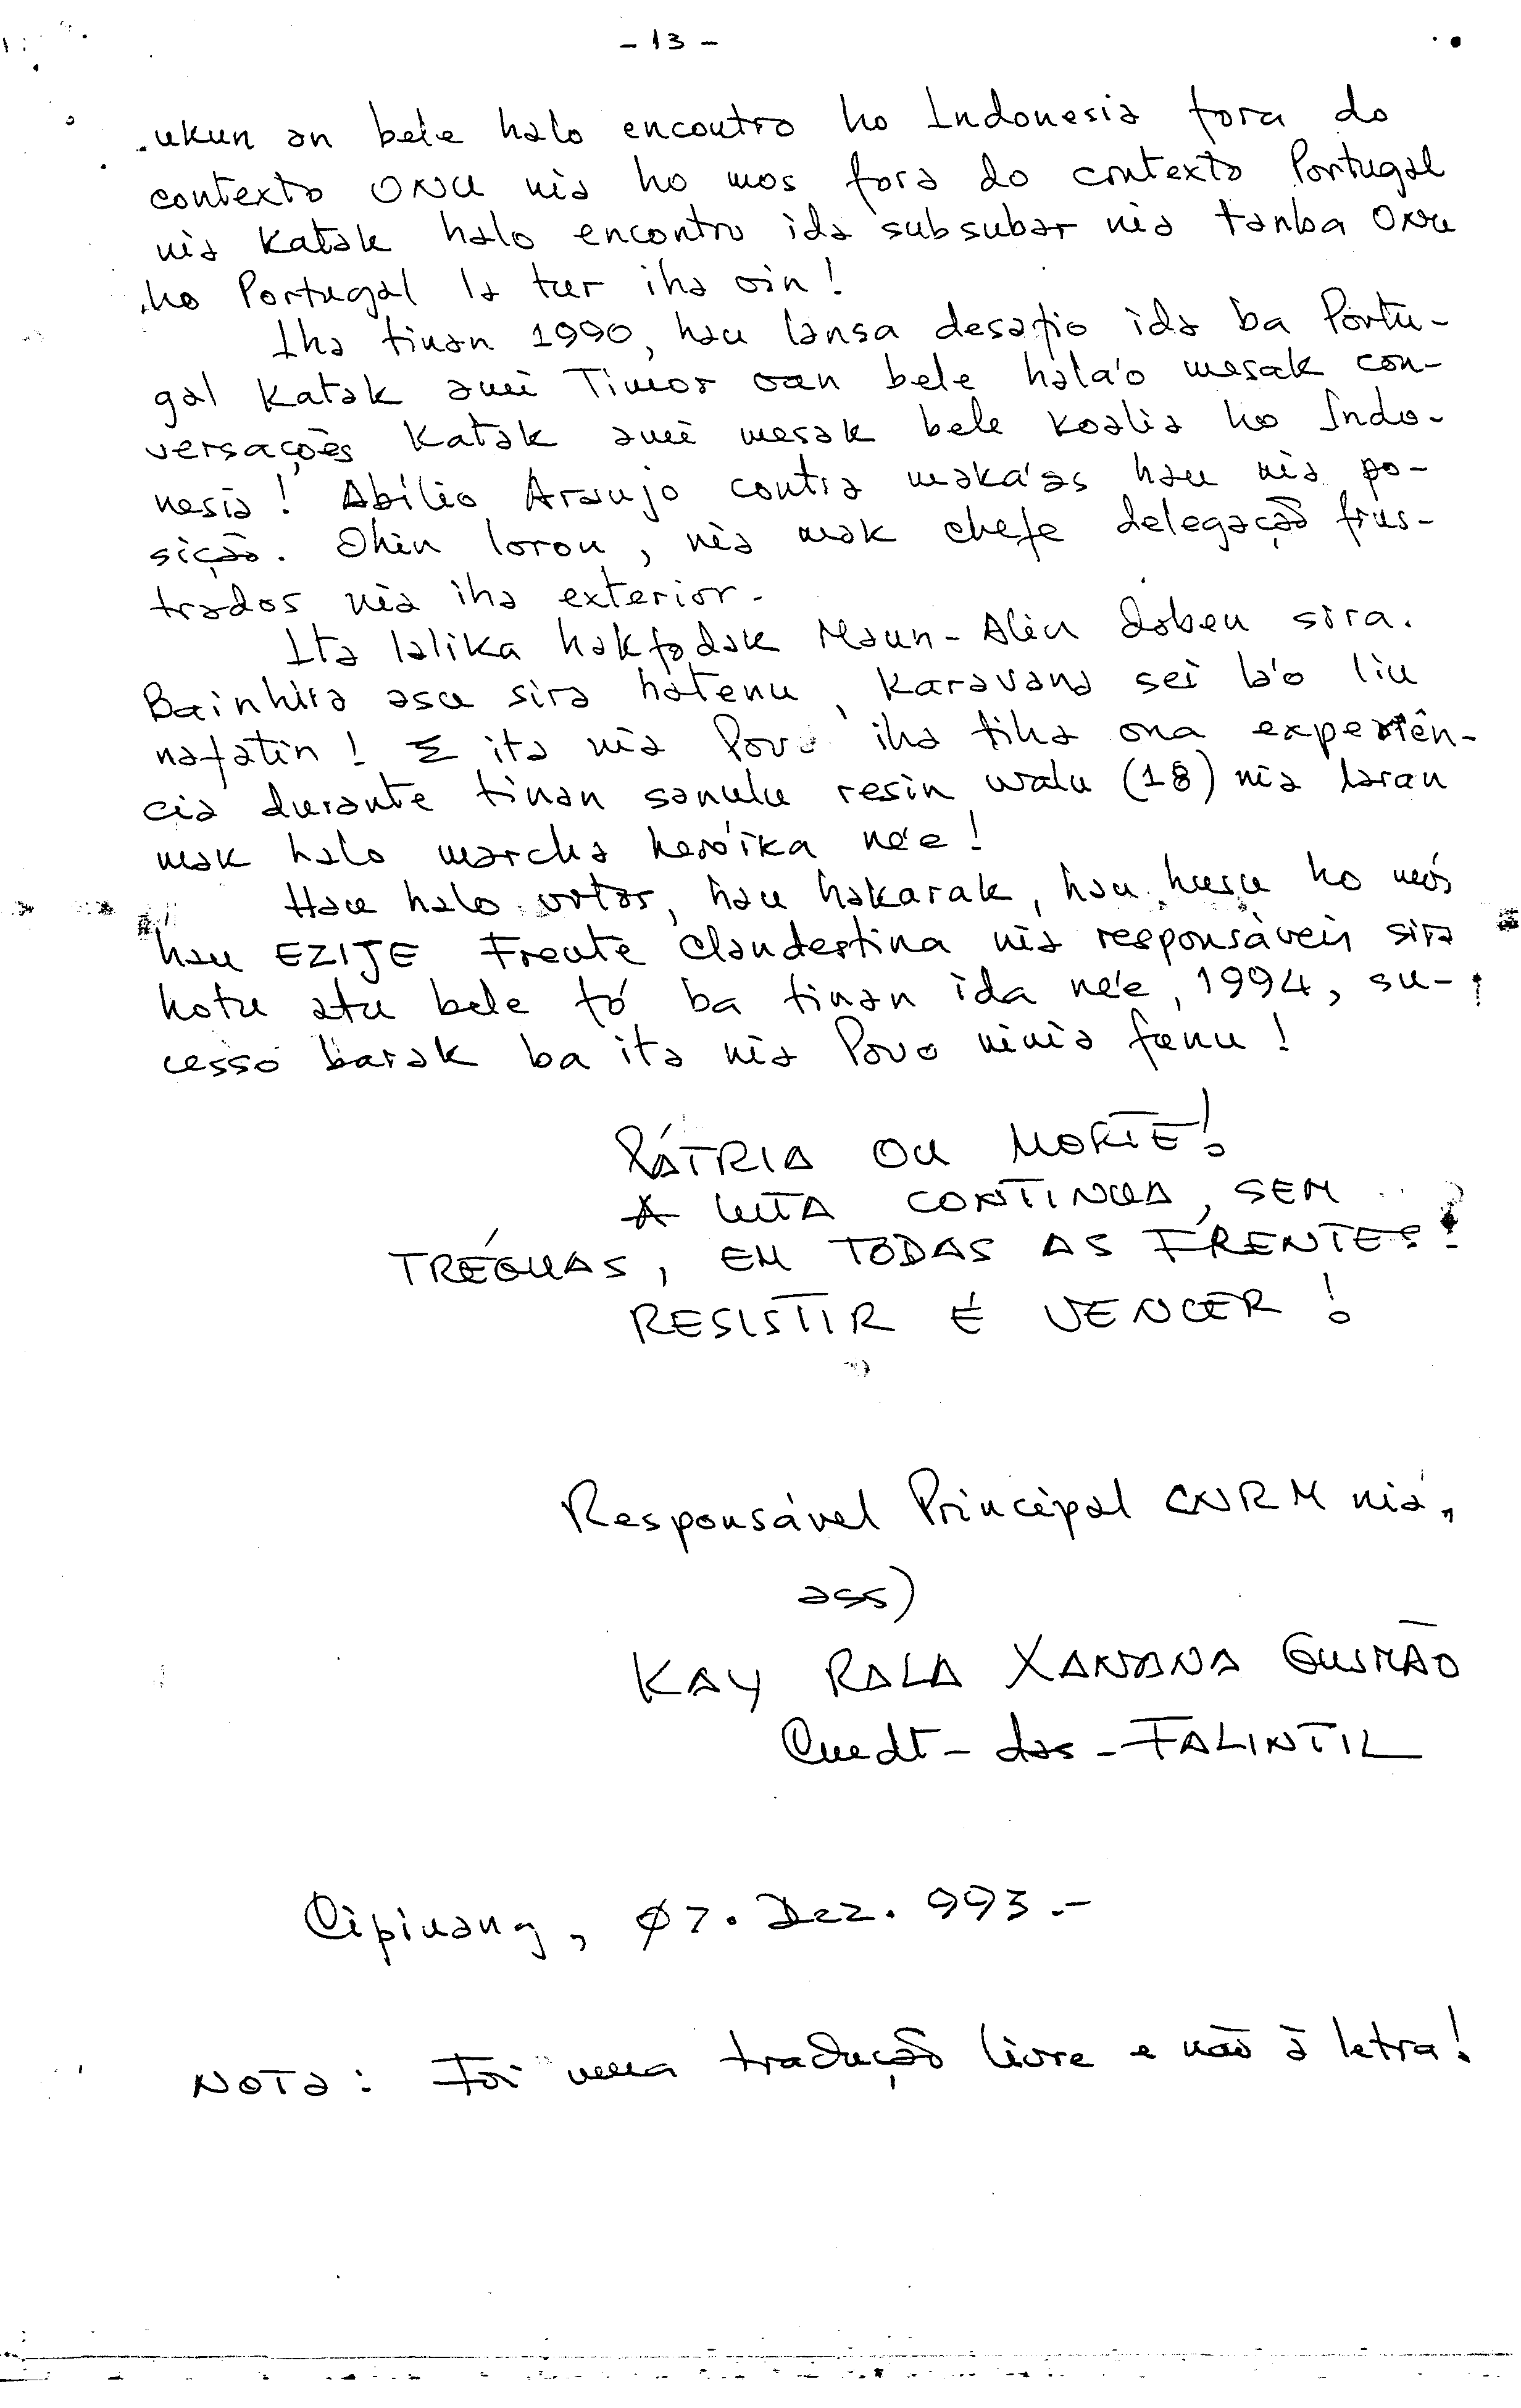 - 13 -
ukun an bele halo encontro ho Indonesia fora do
contexto ONU nia ho mos fora do contexto Portugal
nia katak halo encontro ida subsubar nia tanba ONU
ho Portugal la tur iha oin!
Iha tinan 1990, hau lansa desafio ida ba Portu-
gal katak ami Timor oan bele hala'o mesak con-
versações katak ami mesak bele koalia ho Indo-
nesia! Abílio Araujo contra maka'as hau nia po-
sição. Ohin loron, nia mak chefe delegação frus-
trados nia iha exterior.
Ita lalika hakfodak Maun-Alin doben sira.
Bainhira asu sira hatenu, karavana sei la'o liu
nafatin! E ita nia Povo iha tiha ona experiên-
cia durante tinan sanulu resin walu (18) nia laran
mak halo marcha heróika né'e!
Hau halo votos, hau hakarak, hau husu ho mós
hau EZIJE Frente Clandestina nia responsáveis sira
hotu atu bele tó ba tinan ida né'e, 1994, su-
cesso barak ba ita nia Povo ninia funu!
PÁTRIA OU MORTE!
A LUTA CONTINUA, SEM
TRÉGUAS, EM TODAS AS FRENTES!
RESISTIR É VENCER!
Responsável Principal CNRM nia,
ass)
KAY RALA XANANA GUSMÃO
Cmdt-das-FALINTIL
Cipinang, 07. Dez. 993.-
NOTA: Foi uma tradução livre e não à letra!